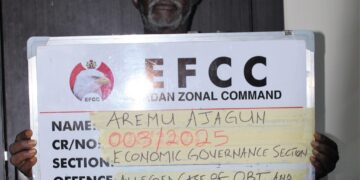 EFCC
EFCC
DAN ZONAL COMMAND
NAME: AREMU AJAGUN
CR/NO: 003/2025
SECTION: ECONOMIC GOVERNANCE Section
OFFENCE: ALLEGED CASE OF OBT AND